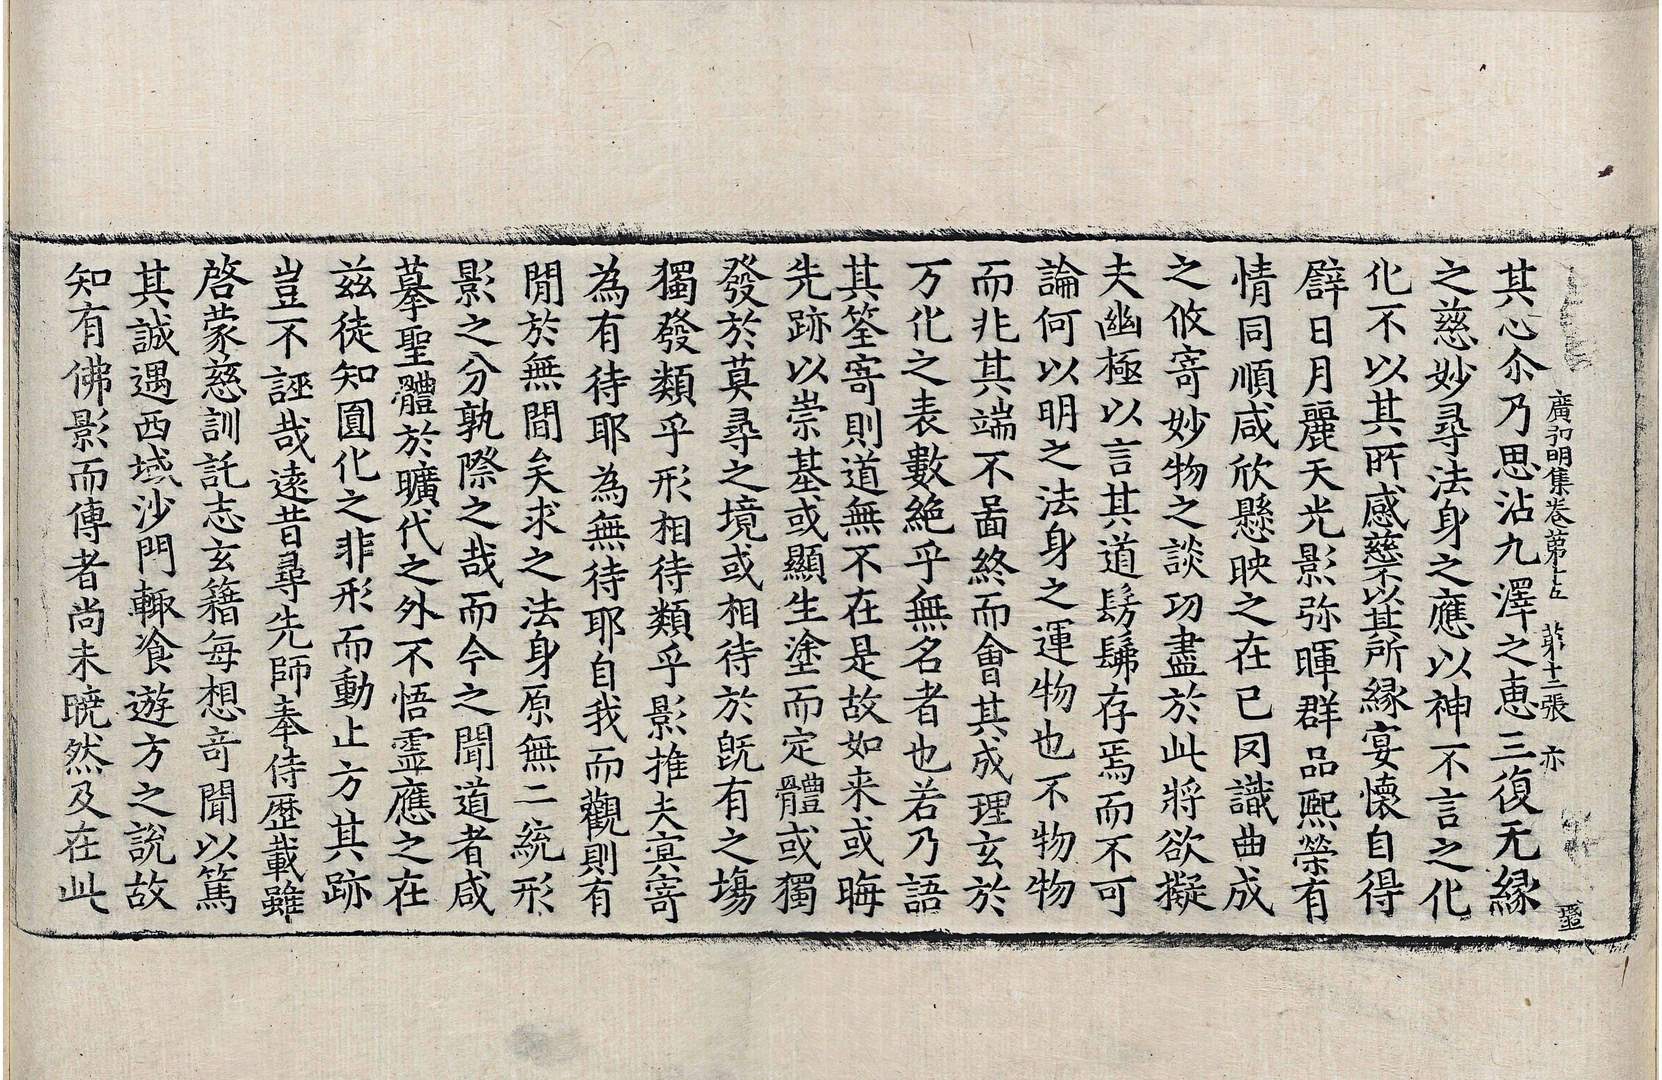 廣弘明集卷第十五　第十二張　亦
其心尒乃思沾九澤之恵三復无縁
之慈妙尋法身之應以神不言之化
化不以其所感慈不以其所縁宴懷自得
辟日月麗天光影弥暉群品熈榮有
情同順咸欣懸映之在已罔識曲成
之攸寄妙物之談功盡於此將欲擬
夫幽極以言其道髣髴存焉而不可
論何以明之法身之運物也不物物
而兆其端不啚終而會其成理玄於
万化之表數絶乎無名者也若乃語
其筌寄則道無不在是故如来或晦
先跡以崇基或顯生塗而定體或獨
發於莫尋之境或相待於旣有之塲
獨發類乎形相待類乎影推夫㝠寄
為有待耶為無待耶自我而觀則有
閒於無閒矣求之法身原無二統形
影之分孰際之哉而今之聞道者咸
摹聖體於曠代之外不悟霊應之在
兹徒知圎化之非形而動止方其跡
豈不誣哉遠昔尋先師奉侍歴載雖
啓蒙慈訓託志玄籍每想竒聞以篤
其誠遇西域沙門輙飡遊方之說故
知有佛影而傳者尚未曉然及在此